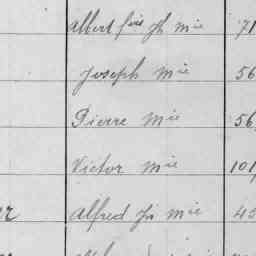 Albert fils Jh Mie 71
Joseph Mie 56
Pierre Mie 56
Victor Mie 101
Alfred fils Mie 45